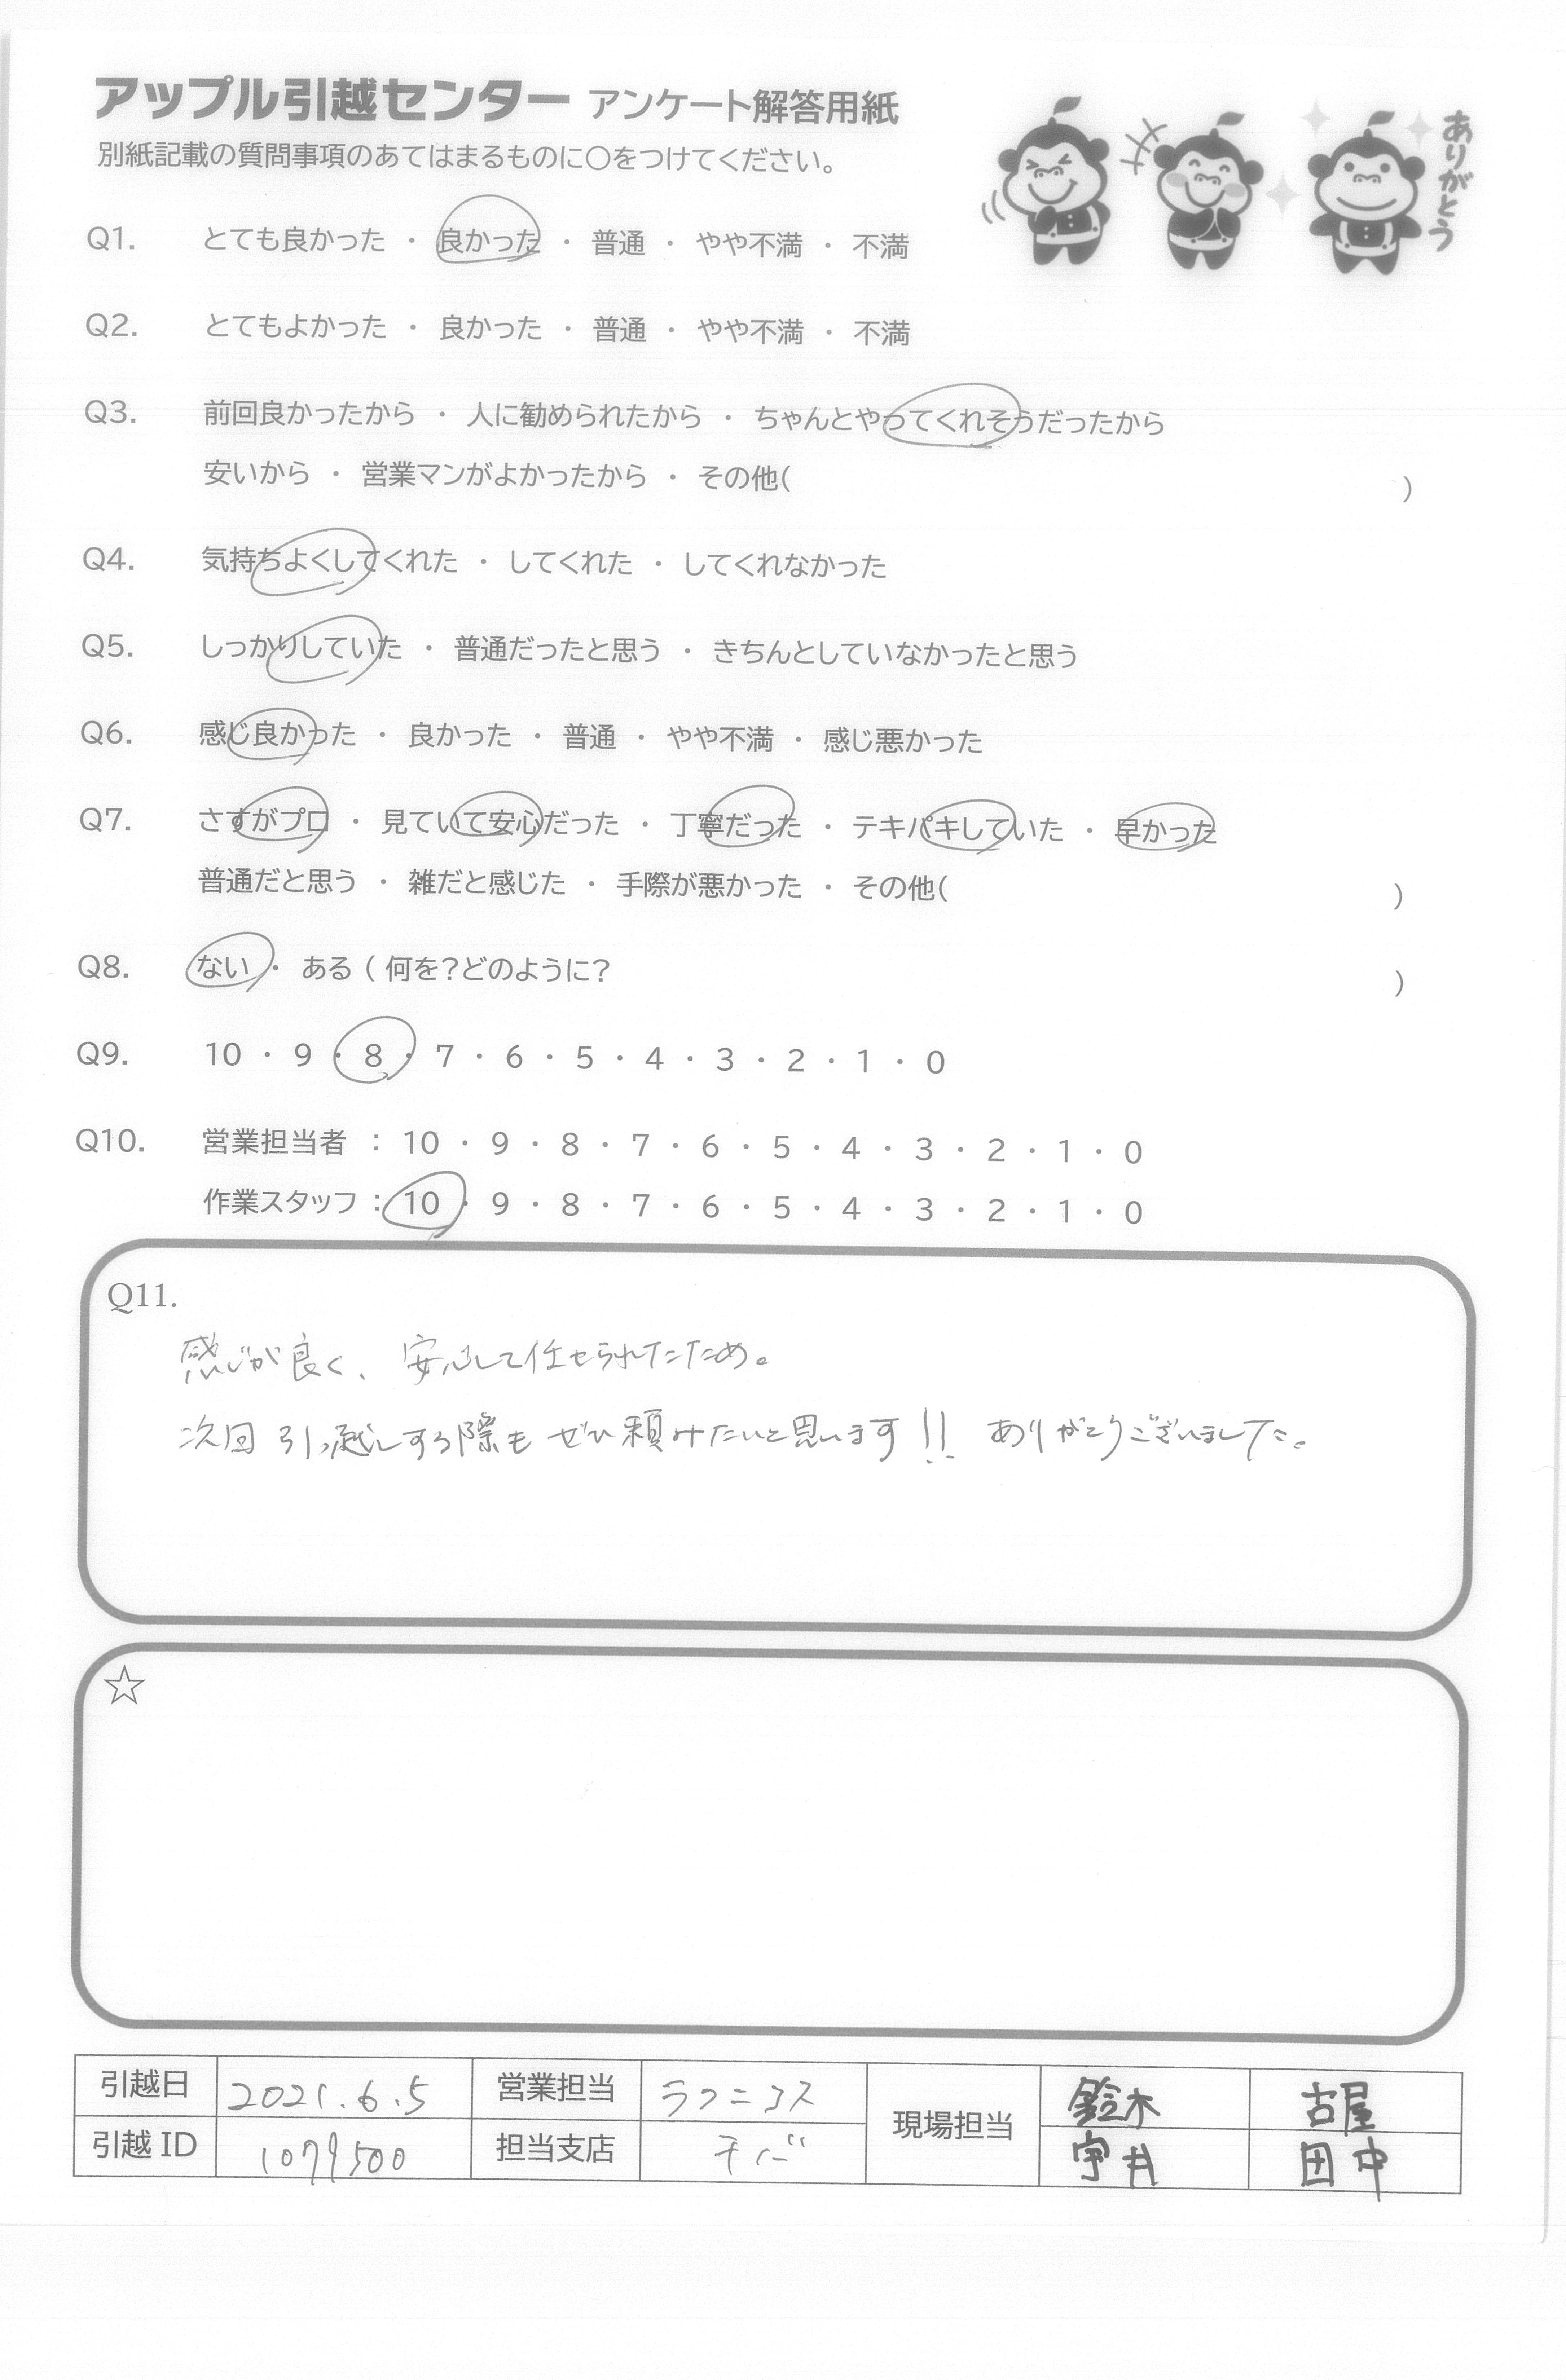 アップル引越センター アンケート解答用紙
別紙記載の質問事項のあてはまるものに〇をつけてください。
ありがとう
Q1. とても良かった ・ 良かった ・ 普通 ・ やや不満 ・ 不満
Q2. とてもよかった ・ 良かった ・ 普通 ・ やや不満 ・ 不満
Q3. 前回良かったから ・ 人に勧められたから ・ ちゃんとやってくれそうだったから
安いから ・ 営業マンがよかったから ・ その他( )
Q4. 気持ちよくしてくれた ・ してくれた ・ してくれなかった
Q5. しっかりしていた ・ 普通だったと思う ・ きちんとしていなかったと思う
Q6. 感じ良かった ・ 良かった ・ 普通 ・ やや不満 ・ 感じ悪かった
Q7. さすがプロ ・ 見ていて安心だった ・ 丁寧だった ・ テキパキしていた ・ 早かった
普通だと思う ・ 雑だと感じた ・ 手際が悪かった ・ その他( )
Q8. ない ・ ある ( 何を?どのように? )
Q9. 10 ・ 9 ・ 8 ・ 7 ・ 6 ・ 5 ・ 4 ・ 3 ・ 2 ・ 1 ・ 0
Q10. 営業担当者 : 10 ・ 9 ・ 8 ・ 7 ・ 6 ・ 5 ・ 4 ・ 3 ・ 2 ・ 1 ・ 0
作業スタッフ : 10 ・ 9 ・ 8 ・ 7 ・ 6 ・ 5 ・ 4 ・ 3 ・ 2 ・ 1 ・ 0
Q11.
感じが良く、安心して任せられたため。
次回引っ越しする際もぜひ頼みたいと思います!! ありがとうございました。
☆
引越日 2021.6.5 営業担当 現場担当 鈴木 古屋
引越ID 1079500 担当支店 チバ 宇井 田中